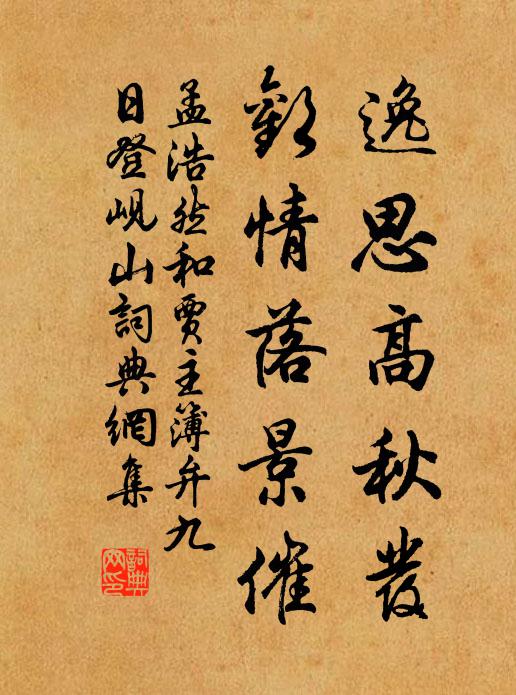 逸思高秋發
歡情落景催
孟浩然和賈主簿弁九
日登峴山詞典網集
詞典網印